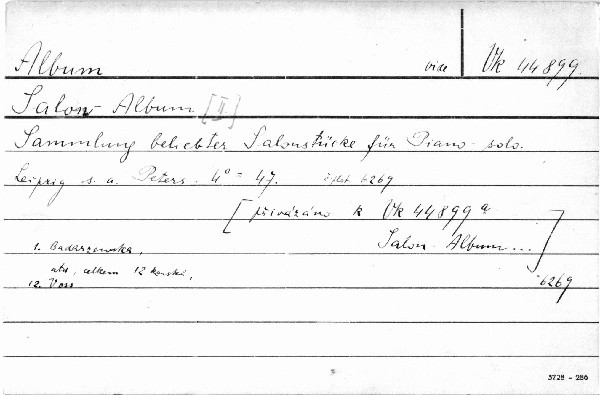 Album vide Vk 44899.
Salon-Album [II]
Sammlung beliebter Salonstücke für Piano-solo.
Leipzig s.a. Peters. 4° = 47. 6269
[přivázáno k Vk 44899a
Salon-Album...]
1. Badarzewska,
atd, celkem 12
12. Voss 6269
3728 - 286